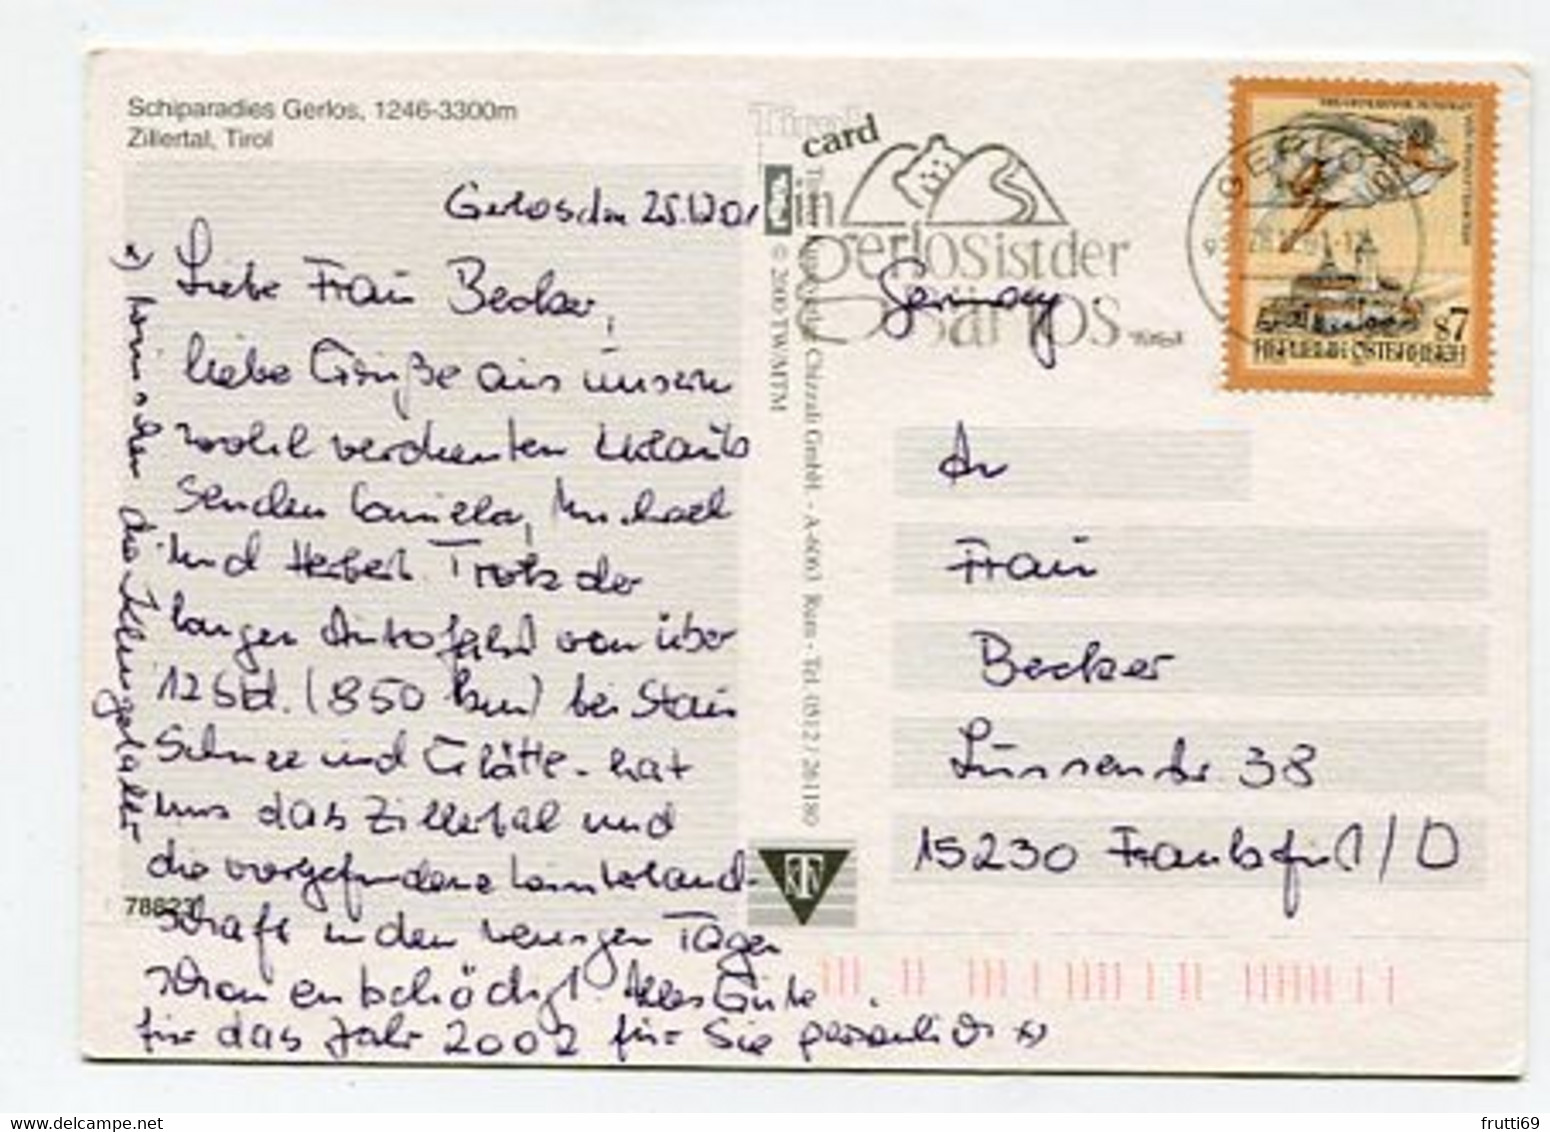 Schiparadies Gerlos, 1246-3300m
Zillertal, Tirol
Gerlos den 25.12.01
Liebe Frau Becker,
liebe Grüße aus unserem
wohl verdienten Urlaub
senden Daniela, Michael
und Herbert. Trotz der
langen Autofahrt von über
12 Std. (850 km) bei Stau
Schnee und Glätte - hat
uns das Zillertal und
die vorgefundene Winterland-
schaft in den wenigen Tagen
schon entschädigt. Alles Gute
für das Jahr 2002 für Sie persönlich x)
x) wünschen die
78623
Tirol
card
in
gerlos ist der
Bär los
Tirol
Germany
GERLOS
S7
REPUBLIK ÖSTERREICH
© 2000 TW/MTM
Chizzali GmbH - A-6063 Rum - Tel. 0512 / 261180
An
Frau
Becker
38
15230 Frankfurt/O
frutti69